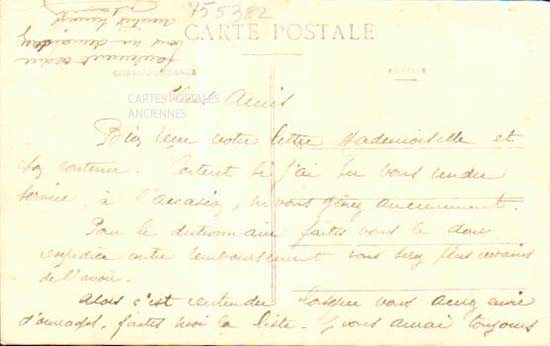 755382
CARTE POSTALE
CORRESPONDANCE
ADRESSE
CARTES POSTALES
ANCIENNES
Chers Amis
Bien reçu votre lettre Mademoiselle et
contenu. Content si j'ai pu vous rendre
service, à l'occasion, ne vous gênez aucunement.
Pour le dictionnaire faites vous le donc
expédier contre remboursement vous serez plus certains
de l'avoir.
Alors c'est entendu lorsque vous aurez envie
d'ouvrages, faites moi la liste. Je vous aurai toujours